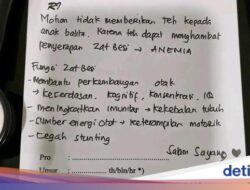 R/
Mohon tidak memberikan teh kepada
anak balita. Karena teh dapat menghambat
penyerapan Zat Besi → ANEMIA
Fungsi Zat Besi
- Membantu perkembangan otak
→ Kecerdasan, Kognitif, Konsentrasi, IQ
- Meningkatkan imunitas → kekebalan tubuh
- Sumber energi Otot → keterampilan motorik
- Cegah Stunting
Salam Sayang
Pro :
Umur : th/bln/hr *)
detik